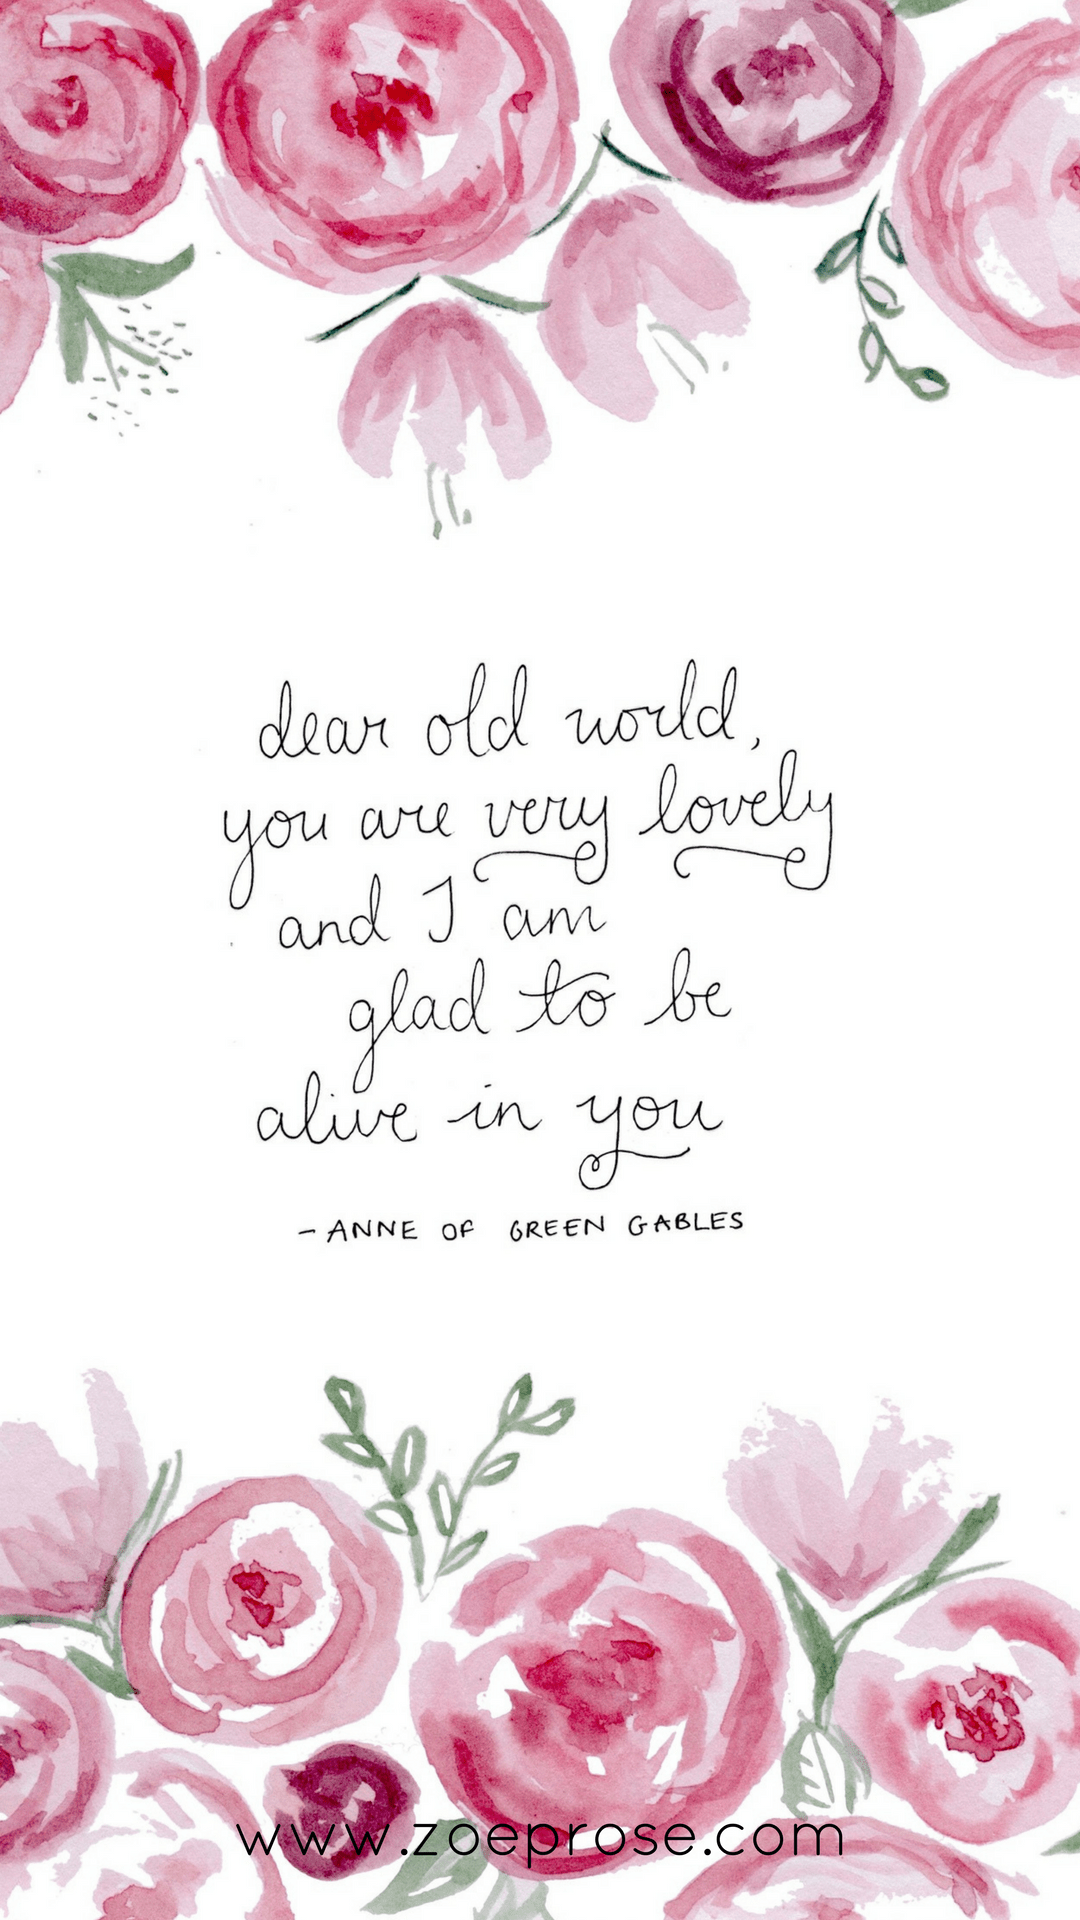 dear old world,
you are very lovely
and I am
glad to be
alive in you
- ANNE OF GREEN GABLES
www.zoeprose.com